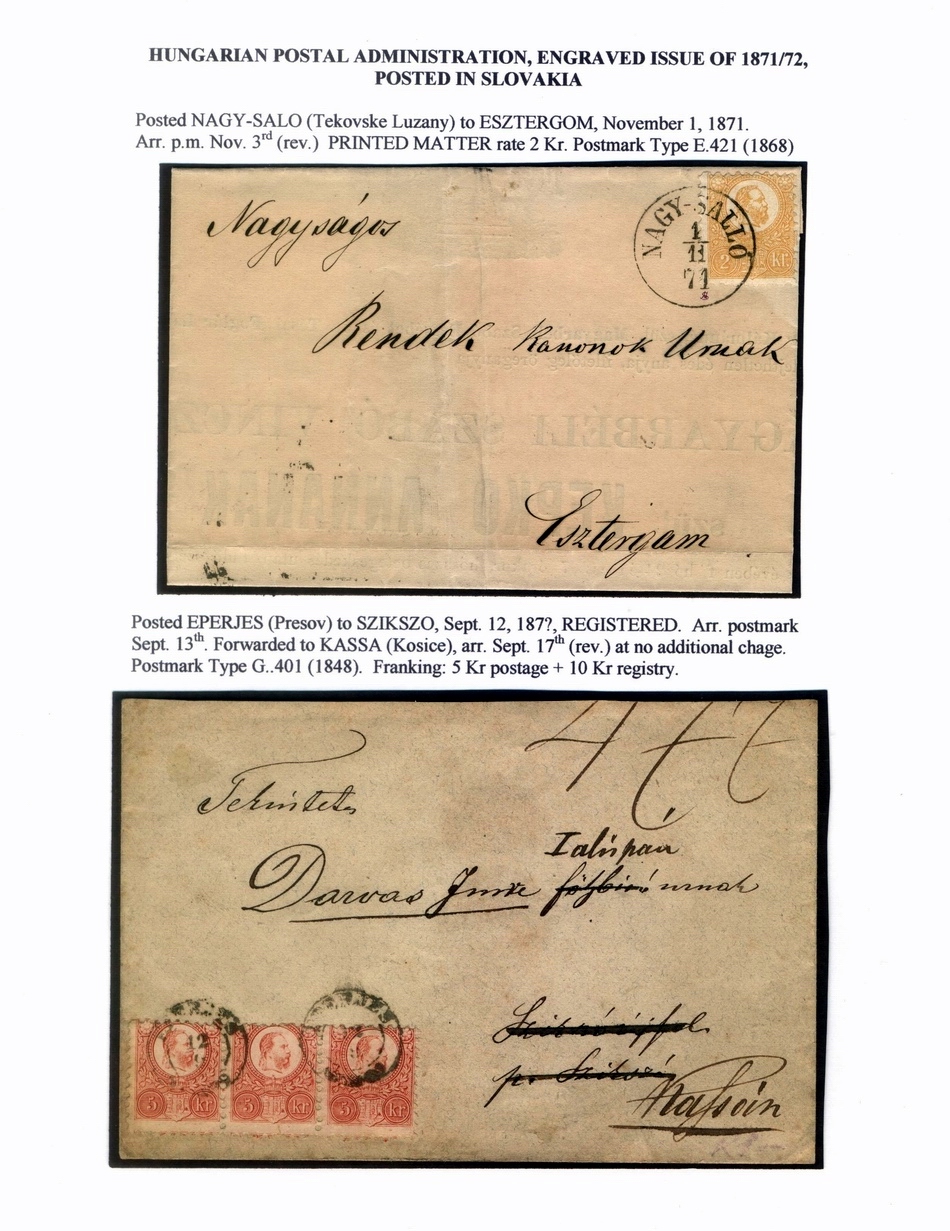 HUNGARIAN POSTAL ADMINISTRATION, ENGRAVED ISSUE OF 1871/72,
POSTED IN SLOVAKIA
Posted NAGY-SALO (Tekovske Luzany) to ESZTERGOM, November 1, 1871.
Arr. p.m. Nov. 3rd (rev.) PRINTED MATTER rate 2 Kr. Postmark Type E.421 (1868)
NAGY-SALLÓ
1
11
71
2 kr
Nagyságos
Rendek Kanonok Urnak
Esztergam
Posted EPERJES (Presov) to SZIKSZO, Sept. 12, 187?, REGISTERED. Arr. postmark
Sept. 13th. Forwarded to KASSA (Kosice), arr. Sept. 17th (rev.) at no additional chage.
Postmark Type G..401 (1848). Franking: 5 Kr postage + 10 Kr registry.
Tekintetes
Darvas Imre urnak
12
5 kr 5 kr 5 kr
p. Szikszó
Kassán